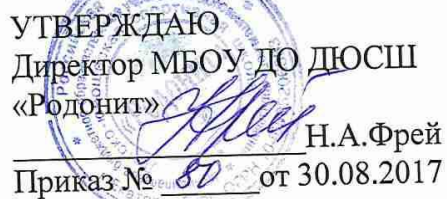 УТВЕРЖДАЮ
Директор МБОУ ДО ДЮСШ
«Родонит»
Н.А.Фрей
Приказ № 80 от 30.08.2017